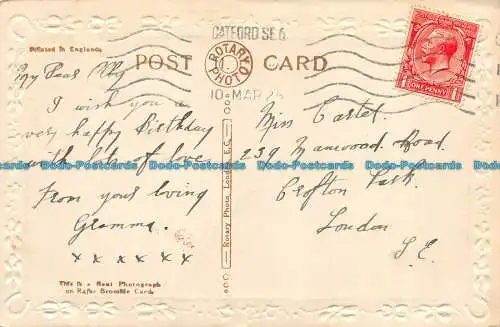 CATFORD S.E.6.
Printed in England.
POST CARD
ROTARY PHOTO
10 MAR 25
ONE PENNY
My Dear
I wish you a
very happy Birthday
with lots of love
from your loving
Gramma.
x x x x x x
Miss Castel
239 Manwood Road
Crofton Park
London
S.E.
Rotary Photo, London, E.C.
This is a Real Photograph
on Rajar Bromide Card.
Dodo-Postcards Dodo-Postcards Dodo-Postcards Dodo-Postcards Dodo-Postcards